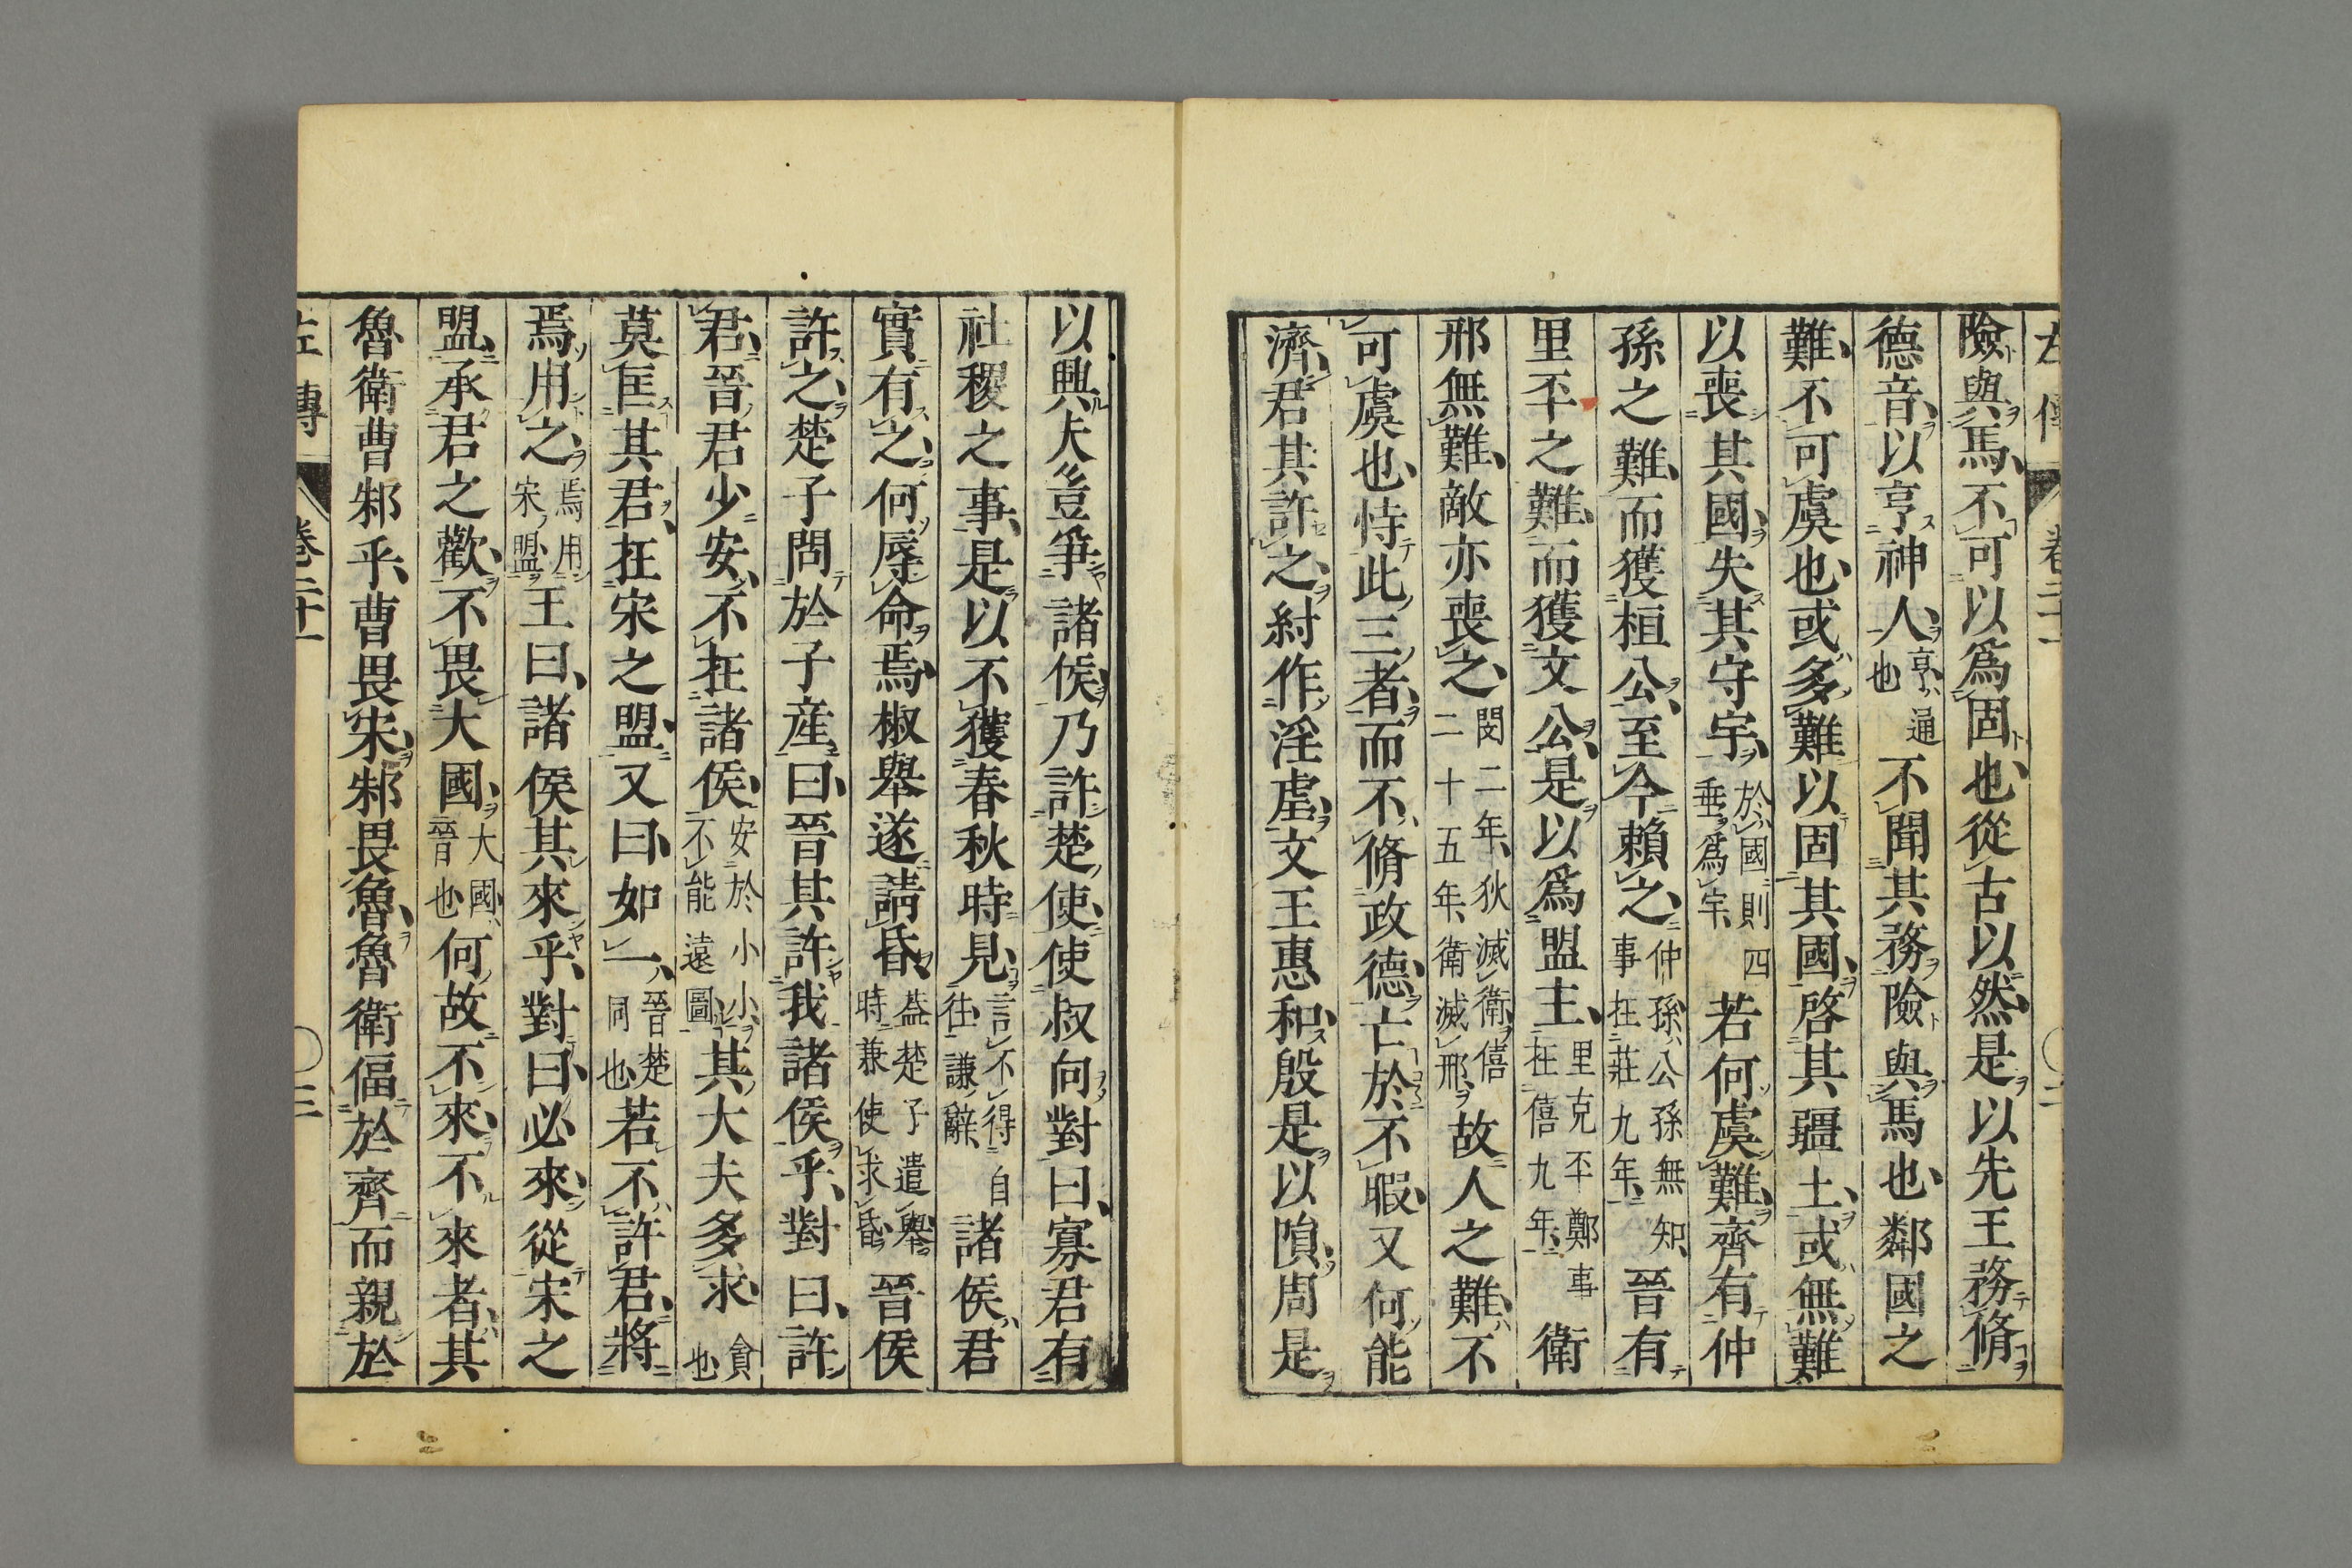 左傳 卷二十一 〇二
險與馬、不可以爲固也、從古以然、是以先王務脩
德音、以亨神人、亨、通也不聞其務險與馬也、鄰國之
難、不可虞也、或多難以固其國、啓其疆土、或無難
以喪其國、失其守宇、於國則四垂爲宇、若何虞難、齊有仲
孫之難、而獲桓公、至今賴之、仲孫、公孫無知、事在莊九年、晉有
里平之難、而獲文公、是以爲盟主、里克平鄭事在僖九年、衛
邢無難、敵亦喪之、閔二年、狄滅衛、僖二十五年、衛滅邢、故人之難、不
可虞也、恃此三者、而不脩政德、亡於不暇、又何能
濟、君其許之、紂作淫虐、文王惠和、殷是以隕、周是
以興、夫豈爭諸侯、乃許楚使、使叔向對曰、寡君有
社稷之事、是以不獲春秋時見、言不得自往、謙辭、諸侯、君
實有之、何辱命焉、椒舉遂請昏、蓋楚子遣舉時兼使求昏、晉侯
許之、楚子問於子產、曰、晉其許我諸侯乎、對曰、許
君、晉君少安、不在諸侯、安於小小、不能遠圖、其大夫多求、貪也
莫匡其君、在宋之盟、又曰、如一、晉楚同也、若不許君、將
焉用之、焉用宋盟、王曰、諸侯其來乎、對曰、必來、從宋之
盟、承君之歡、不畏大國、大國、晉也何故不來、不來者、其
魯衛曹邾乎、曹畏宋、邾畏魯、魯衛偪於齊而親於
左傳 卷二十一 〇三